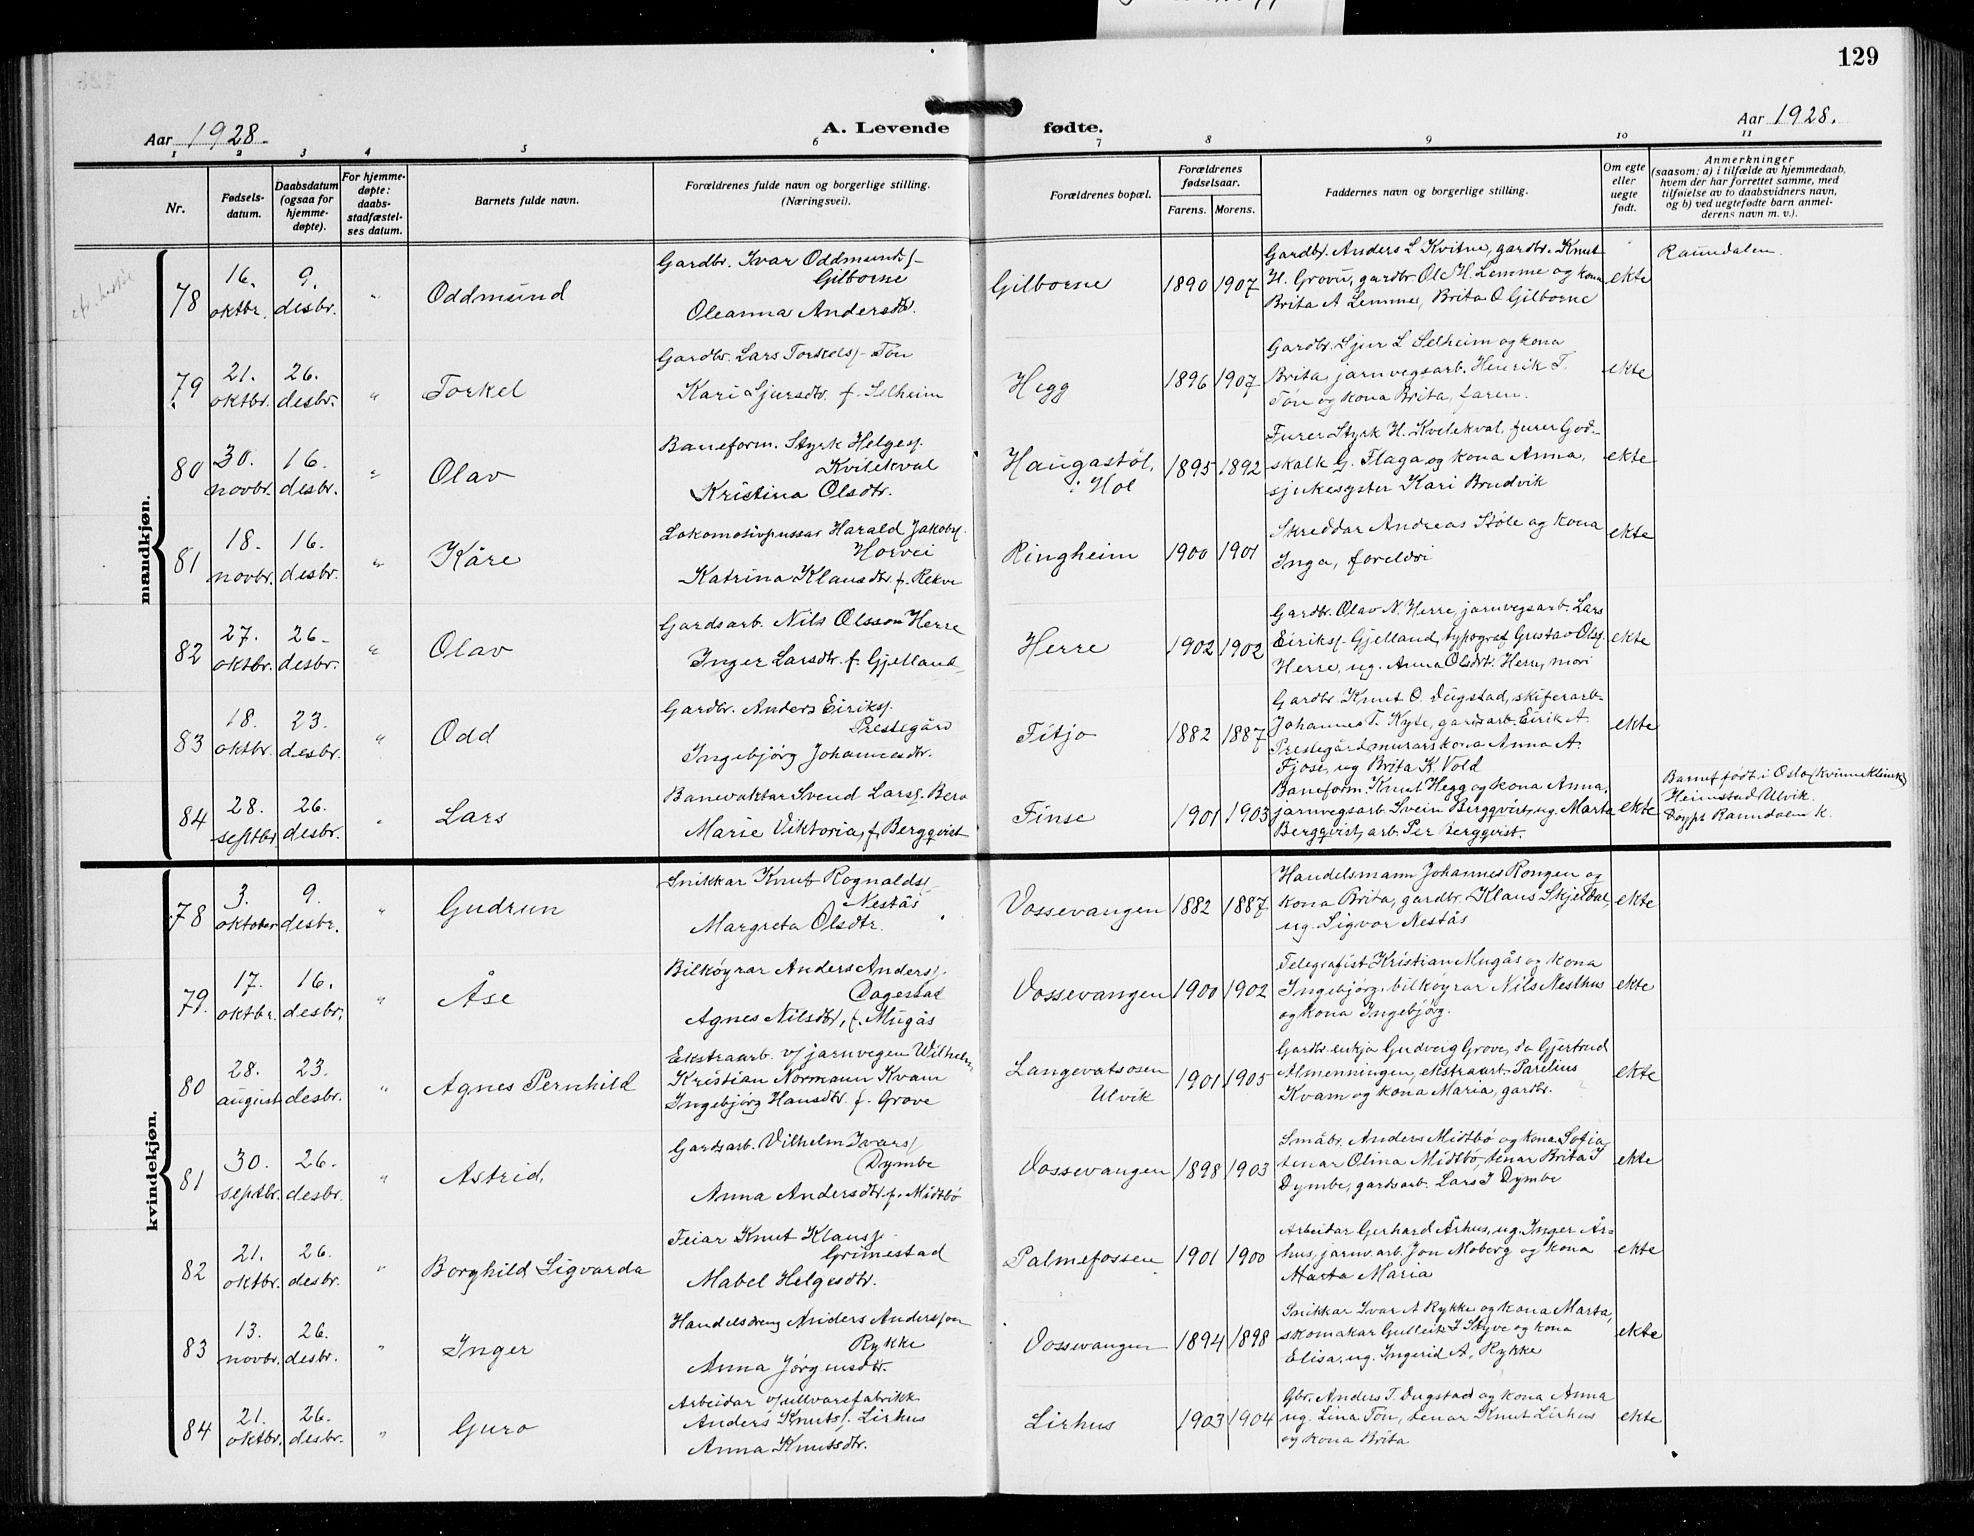 129
Aar 1928.
A. Levende fødte.
Aar 1928.
1 2 3 4 5 6 7 8 9 10 11
Nr.
Fødsels-
datum.
Daabsdatum
(ogsaa for
hjemme-
døpte).
For hjemme-
døpte:
daabs-
stadfæstel-
ses datum.
Barnets fulde navn.
Forældrenes fulde navn og borgerlige stilling.
(Næringsvei).
Forældrenes bopæl.
Forældrenes
fødselsaar.
Farens. Morens.
Faddernes navn og borgerlige stilling.
Om egte
eller
uegte
født.
Anmerkninger
(saasom: a) i tilfælde av hjemmedaab,
hvem der har forrettet samme, med
tilføielse av to daabsvidners navn,
og b) ved uegtefødte barn anmel-
derens navn m. v.).
mandkjøn.
78
16.
oktbr.
9.
desbr.
"
Oddmund
Gardbr. Ivar Oddmunds/-
Gilborne
Oleanna Andersdtr.
Gilborne
1890 1907
Gardbr. Anders L Kvitne, gardbr. Knut
H. Grovu, gardbr Ole H. Lemme og kona
Brita A Lemme, Brita O Gilborne
ekte
Raundalen
79
21.
oktbr.
26.
desbr.
"
Torkel
Gardbr. Lars Torkels/- Tøn
Kari Sjursdtr. f. Selheim
Hegg
1896 1907
Gardbr. Sjur L Selheim og kona
Brita, jarnvegsarb. Henrik T.
Tøn og kona Brita, faren.
ekte
80
30.
novbr.
16.
desbr.
"
Olav
Baneform. Styrk Helges/.
Kvilekval
Kristina Olsdtr.
Haugastøl,
i Hol
1895 1892
Furer Styrk H. Kvilekval, furer God-
skalk G. Flaga og kona Anna,
sjukesyster Kari Brudvik
ekte
81
18.
novbr.
16.
desbr.
"
Kåre
Lokomotivpussar Harald Jakobs/.
Horvei
Katrina Klausdtr. f. Rekve
Ringheim
1900 1901
Skreddar Andreas Støle og kona
Inga, foreldri
ekte
82
27.
oktbr.
26.
desbr.
"
Olav
Gardsarb. Nils Olsson Herre
Inger Larsdtr. f. Gjelland
Herre
1902 1902
Gardbr. Olav N. Herre, jarnvegsarb. Lars
Eiriks/. Gjelland, typograf Gustav Ols/.
Herre, ug. Anna Olsdtr. Herre, mori
ekte
83
18.
oktbr.
23.
desbr.
"
Odd
Gardbr. Anders Eiriks/.
Prestegård
Ingebjørg Johannesdtr.
Fitjo
1882 1887
Gardbr. Knut O. Dugstad, skiferarb.
Johannes T. Kyte, gardsarb. Eirik A.
Prestegård, murarskona Anna A.
Fjose, ug Brita K. Vold
ekte
84
28.
septbr.
26.
desbr.
"
Lars
Banevaktar Svend Lars/. Berg
Marie Viktoria, f. Bergqvist
Finse
1901 1903
Baneform. Knut Hegg og kona Anna,
jarnvegsarb. Svein Bergqvist, ug. Marta
Bergqvist, arb. Per Bergqvist.
ekte
Barnet født i Oslo (Kvinneklinik)
Heimstad Ulvik.
Døypt Raundalen K.
kvindekjøn.
78
3.
oktober
9.
desbr.
"
Gudrun
Snikkar Knut Rognalds/.
Nestås
Margreta Olsdtr.
Vossevangen
1882 1887
Handelsmann Johannes Rongen og
kona Brita, gardbr. Klaus Skjeldal,
ug. Sigvor Nestås
ekte
79.
17.
oktbr.
16.
desbr.
"
Åse
Bilkøyrar Anders Anders/.
Dagestad
Agnes Nilsdtr, f. Mugås
Vossevangen
1900 1902
Telegrafist Kristian Mugås og kona
Ingebjørg, bilkøyrar Nils Nesthus
og kona Ingebjørg.
ekte
80
28.
august
23.
desbr.
"
Agnes Pernhild
Ekstraarb. v/ jarnvegen Wilhelm
Kristian Normann Kvam
Ingebjørg Hansdtr f. Grove
Langevatsosen
Ulvik
1901 1905
Gardbr.enkja Gudverg Grove, do Gjertrud
Almenningen, ekstraarb. Parelius
Kvam og kona Maria, gardbr.
ekte
81
30.
septbr.
26.
desbr.
"
Astrid.
Gardsarb. Vilhelm Ivars/
Dymbe
Anna Andersdtr f. Midtbø
Vossevangen
1898 1903
Småbr. Anders Midtbø og kona Sofia,
tenar Olina Midtbø, tenar Brita I
Dymbe, gardsarb. Lars I Dymbe
ekte
82
21.
oktbr.
26.
desbr.
"
Borghild Sigvarda
Feiar Knut Klaus/.
Grimestad
Mabel Helgesdtr.
Palmefossen
1901 1900
Arbeidar Gerhard Århus, ug. Inger År-
hus, jarnv.arb. Jon Moberg og kona
Marta Maria
ekte
83
13.
novbr.
26.
desbr.
"
Inger
Handelsdreng Anders Andersson
Rykke
Anna Jørgensdtr.
Vossevangen
1894 1898
Snikkar Ivar A Rykke og kona Marta,
skomakar Gulleik I Skyve og kona
Elisa, ug. Ingerid A. Rykke
ekte
84
21.
oktbr.
26.
desbr.
"
Guro
Arbeidar v/ullvarefabrikk
Anders Knuts/. Lirhus
Anna Knutsdtr.
Lirhus
1903 1904
Gbr. Anders T. Dugstad og kona Anna
ug. Lina Tøn, tenar Knut Lirhus
og kona Brita
ekte